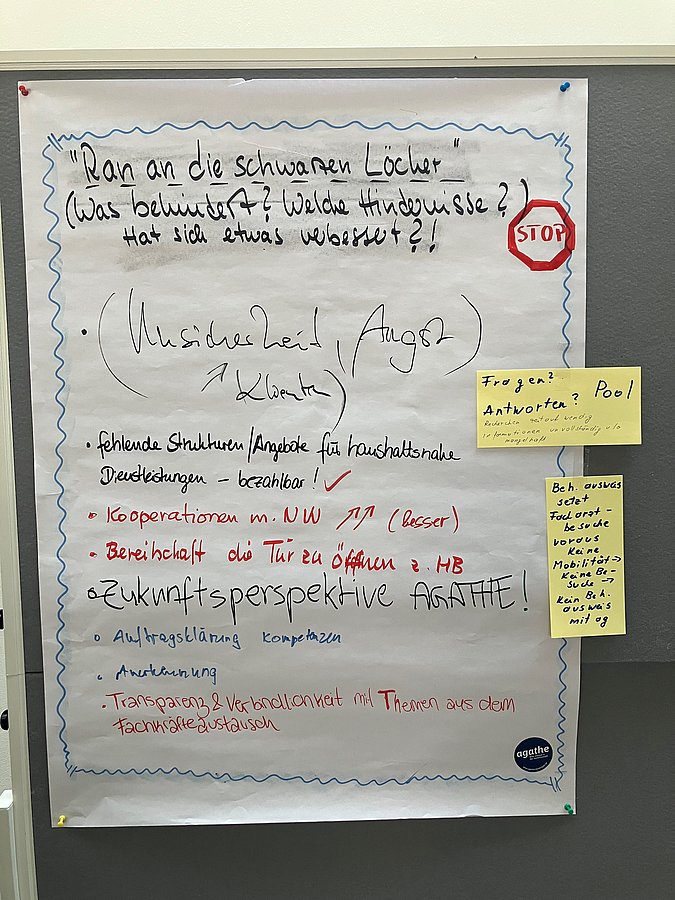 "Ran an die schwarzen Löcher"
(Was behindert? Welche Hindernisse?)
Hat sich etwas verbessert?!
STOP
• (Unsicherheit, Angst)
↗ Klienten)
• fehlende Strukturen/Angebote für haushaltsnahe
Dienstleistungen – bezahlbar! ✓
• Kooperationen m. NW ↗↗ (besser)
• Bereitschaft die Tür zu Öffnen z. HB
• Zukunftsperspektive AGATHE!
• Auftragsklärung Kompetenzen
• Anerkennung
• Transparenz & Verbindlichkeit mit Themen aus dem
Fachkräfteaustausch
agathe
Fragen?
Antworten? Pool
Recherchen zeitaufwendig
Informationen unvollständig u/o
mangelhaft
Beh. ausweis
setzt
Facharzt-
besuche
voraus
Keine
Mobilität→
Keine Be-
suche →
Kein Beh.
ausweis
mit ag